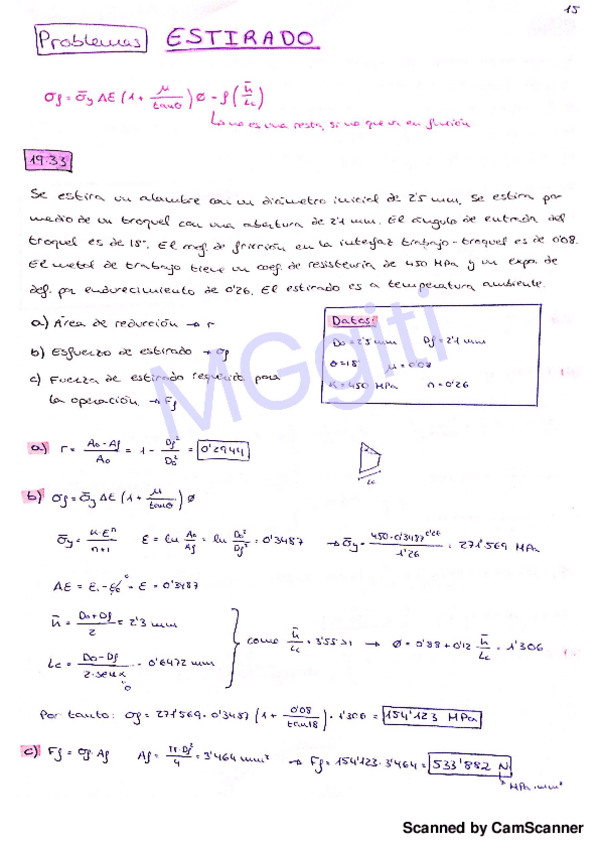 15
Problemas ESTIRADO
σf = σ̄y ΔE (1 + μ/tanθ) ø → f (h̄/Lc)
↳ no es una resta, si no que va en función
19.33
Se estira un alambre con un diámetro inicial de 2'5 mm. Se estira por
medio de un troquel con una abertura de 2'1 mm. El ángulo de entrada del
troquel es de 18°. El coef. de fricción en la interfaz trabajo-troquel es de 0'08.
El metal de trabajo tiene un coef. de resistencia de 450 MPa y un expo. de
def. por endurecimiento de 0'26. El estirado es a temperatura ambiente.
a) Área de reducción → r
b) Esfuerzo de estirado → σf
c) Fuerza de estirado requerida para
la operación → Ff
Datos:
Do = 2'5 mm Df = 2'1 mm
θ = 18° μ = 0'08
K = 450 MPa n = 0'26
MGgiti
a) r = (Ao - Af)/Ao = 1 - Df²/Do² = 0'2944
Lc
b) σf = σ̄y ΔE (1 + μ/tanθ) ø
σ̄y = K·Eⁿ/(n+1) E = ln Ao/Af = ln Do²/Df² = 0'3487 → σ̄y = 450·0'3487^0'26/1'26 = 271'569 MPa
ΔE = E - Eo = E = 0'3487
h̄ = (Do + Df)/2 = 2'3 mm
Lc = (Do - Df)/(2·sen α) = 0'6472 mm
como h̄/Lc = 3'55 > 1 → ø = 0'88 + 0'12 h̄/Lc = 1'306
Por tanto: σf = 271'569 · 0'3487 (1 + 0'08/tan18) · 1'306 = 154'123 MPa
c) Ff = σf · Af Af = π·Df²/4 = 3'464 mm² → Ff = 154'123 · 3'464 = 533'882 N
↳ MPa·mm²
Scanned by CamScanner